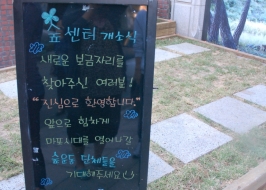 숲센터 개소식
새로운 보금자리를
찾아주신 여러분!
"진심으로 환영합니다."
앞으로 힘차게
마포시대를 열어나갈
숲운동 단체들을
기대해주세요